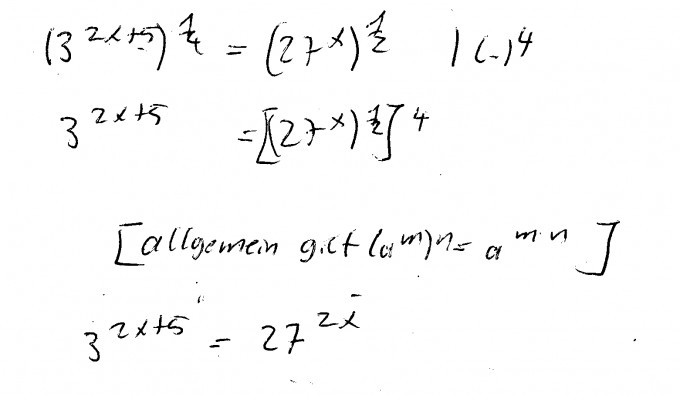 (3^{2x+5})^{1/4} = (27^x)^{1/2} | (-)^4
3^{2x+5} = [(27^x)^{1/2}]^4
[allgemein gilt (a^m)^n = a^{m·n}]
3^{2x+5} = 27^{2x}